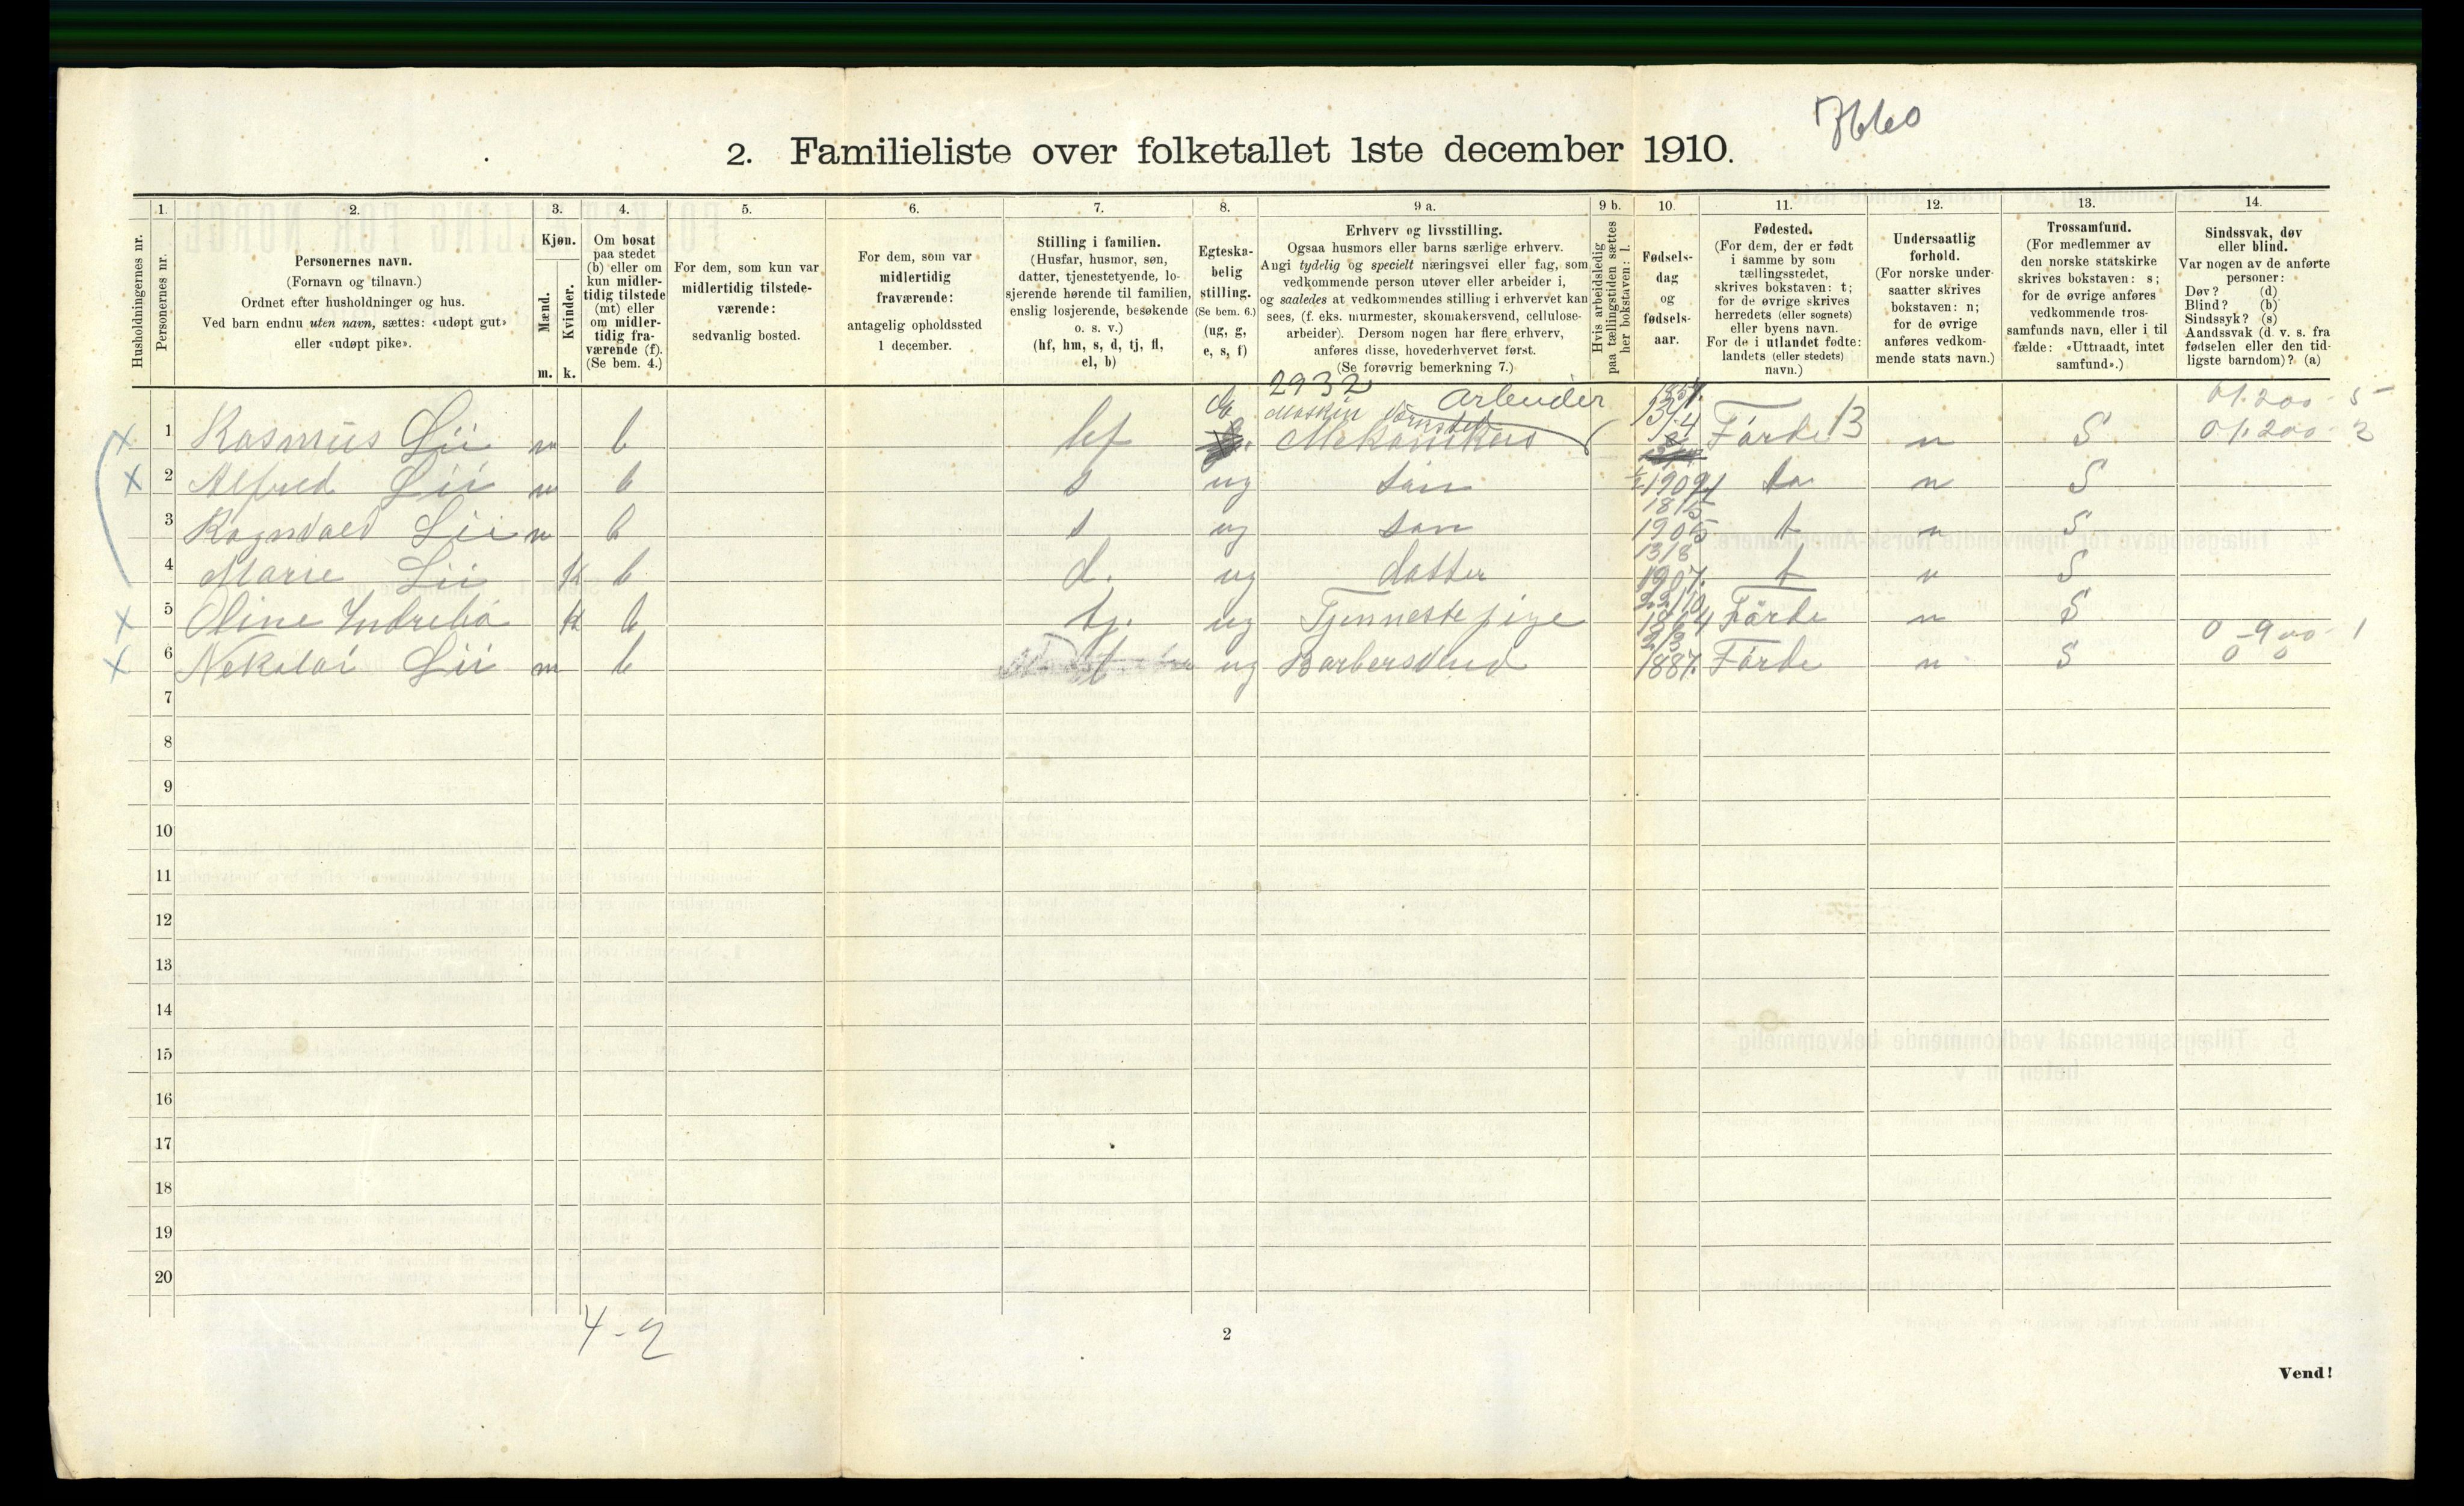 2. Familieliste over folketallet 1ste december 1910.
1. 2. 3. 4. 5. 6. 7. 8. 9 a. 9 b. 10. 11. 12. 13. 14.
Husholdningernes nr.
Personernes nr.
Personernes navn.
(Fornavn og tilnavn.)
Ordnet efter husholdninger og hus.
Ved barn endnu uten navn, sættes: «udøpt gut»
eller «udøpt pike».
Kjøn.
Mænd.
Kvinder.
m. k.
Om bosat
paa stedet
(b) eller om
kun midler-
tidig tilstede
(mt) eller
om midler-
tidig fra-
værende (f).
(Se bem. 4.)
For dem, som kun var
midlertidig tilstede-
værende:
sedvanlig bosted.
For dem, som var
midlertidig
fraværende:
antagelig opholdssted
1 december.
Stilling i familien.
(Husfar, husmor, søn,
datter, tjenestetyende, lo-
sjerende hørende til familien,
enslig losjerende, besøkende
o. s. v.)
(hf, hm, s, d, tj, fl,
el, b)
Egteska-
belig
stilling.
(Se bem. 6.)
(ug, g,
e, s, f)
Erhverv og livsstilling.
Ogsaa husmors eller barns særlige erhverv.
Angi tydelig og specielt næringsvei eller fag, som
vedkommende person utøver eller arbeider i,
og saaledes at vedkommendes stilling i erhvervet kan
sees, (f. eks. murmester, skomakersvend, cellulose-
arbeider). Dersom nogen har flere erhverv,
anføres disse, hovederhvervet først.
(Se forøvrig bemerkning 7.)
Hvis arbeidsledig
paa tællingstiden sættes
her bokstaven: l.
Fødsels-
dag
og
fødsels-
aar.
Fødested.
(For dem, der er født
i samme by som
tællingsstedet,
skrives bokstaven: t;
for de øvrige skrives
herredets (eller sognets)
eller byens navn.
For de i utlandet fødte:
landets (eller stedets)
navn.)
Undersaatlig
forhold.
(For norske under-
saatter skrives
bokstaven: n;
for de øvrige
anføres vedkom-
mende stats navn.)
Trossamfund.
(For medlemmer av
den norske statskirke
skrives bokstaven: s;
for de øvrige anføres
vedkommende tros-
samfunds navn, eller i til
fælde: «Uttraadt, intet
samfund».)
Sindssvak, døv
eller blind.
Var nogen av de anførte
personer:
Døv? (d)
Blind? (b)
Sindssyk? (s)
Aandssvak (d. v. s. fra
fødselen eller den tid-
ligste barndom)? (a)
2932 Arbeider
1 Rasmus Lii m b hf Mekanikus 13/4 Førde 13 n S 01.200 2
2 Alfred Lii m b s ug søn n S
3 Ragnvald Lii m b s ug søn 18/5 1905 t n S
4 Marie Lii k b d. ug datter 13/8 1907. t n S
5 Oline Indrebö k b tj. ug Tjennestepige 22/10 1864 Förde n S
6 Nekolai Lii m b ug Barbersvend 1887. Förde n S 0 900 1
7
8
9
10
11
12
13
14
15
16
17
18
19
20
4-2
2
Vend!